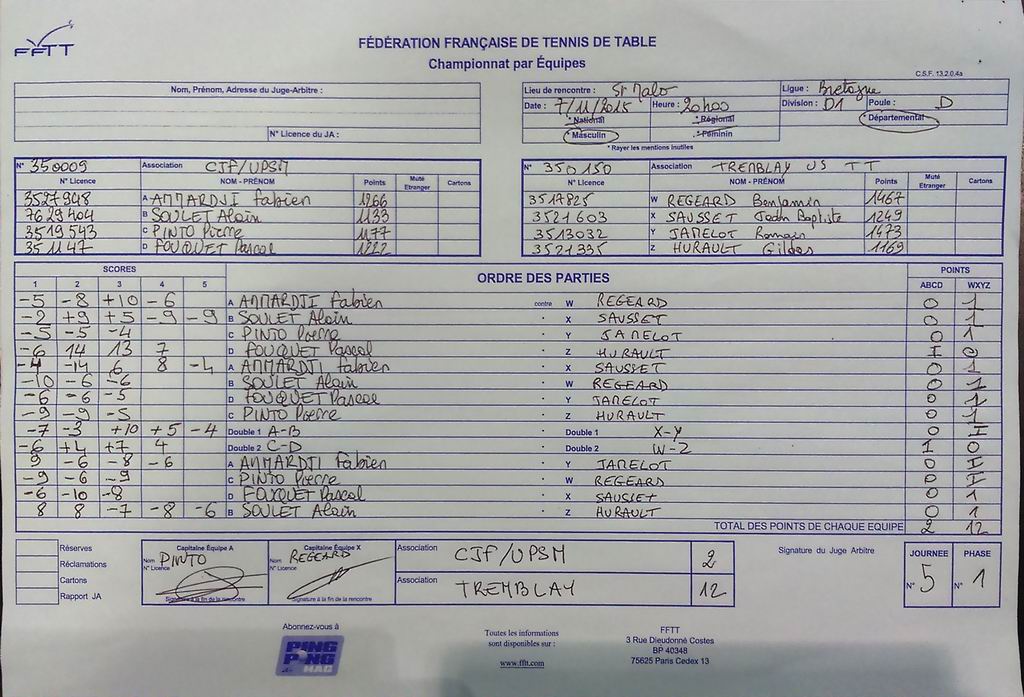 FFTT
FÉDÉRATION FRANÇAISE DE TENNIS DE TABLE
Championnat par Équipes
C.S.F. 13.2.0.4a
Nom, Prénom, Adresse du Juge-Arbitre :
N° Licence du JA :
Lieu de rencontre : St Malo Ligue : Bretagne
Date : 7/11/2015 Heure : 20h00 Division : D1 Poule : D
* National * Régional * Départemental
* Masculin * Féminin
* Rayer les mentions inutiles
N° 350009 Association CJF/UPSM
N° Licence NOM - PRÉNOM Points Muté Etranger Cartons
3527948 A AMMARDJI Fabien 1266
7629404 B SOULET Alain 1133
3519543 C PINTO Pierre 1177
3511147 D FOUQUET Pascal 1222
N° 350150 Association TREMBLAY US TT
N° Licence NOM - PRÉNOM Points Muté Etranger Cartons
3517825 W REGEARD Benjamin 1467
3521603 X SAUSSET Jean Baptiste 1249
3513032 Y JAMELOT Romain 1473
3521335 Z HURAULT Gildas 1169
SCORES ORDRE DES PARTIES POINTS
1 2 3 4 5 ABCD WXYZ
-5 -8 +10 -6 A AMMARDJI Fabien contre W REGEARD 0 1
-2 +9 +5 -9 -9 B SOULET Alain X SAUSSET 0 1
-5 -5 -4 C PINTO Pierre Y JAMELOT 0 1
-6 14 13 7 D FOUQUET Pascal Z HURAULT I 0
-4 -14 6 8 -4 A AMMARDJI Fabien X SAUSSET 0 1
-10 -6 -6 B SOULET Alain W REGEARD 0 1
-6 -6 -5 D FOUQUET Pascal Y JAMELOT 0 1
-9 -9 -5 C PINTO Pierre Z HURAULT 0 1
-7 -3 +10 +5 -4 Double 1 A-B Double 1 X-Y 0 I
-6 +4 +7 4 Double 2 C-D Double 2 W-Z 1 0
9 -6 -8 -6 A AMMARDJI Fabien Y JAMELOT 0 I
-9 -6 -9 C PINTO Pierre W REGEARD 0 I
-6 -10 -8 D FOUQUET Pascal X SAUSSET 0 1
8 8 -7 -8 -6 B SOULET Alain Z HURAULT 0 1
TOTAL DES POINTS DE CHAQUE EQUIPE 2 12
Réserves
Réclamations
Cartons
Rapport JA
Capitaine Équipe A
Nom PINTO
N° Licence
Signature à la fin de la rencontre
Capitaine Équipe X
Nom REGEARD
N° Licence
Signature à la fin de la rencontre
Association CJF/UPSM 2
Association TREMBLAY 12
Signature du Juge Arbitre
JOURNEE PHASE
N° 5 N° 1
Abonnez-vous à
PING PONG MAG
Toutes les informations
sont disponibles sur :
www.fftt.com
FFTT
3 Rue Dieudonné Costes
BP 40348
75625 Paris Cedex 13